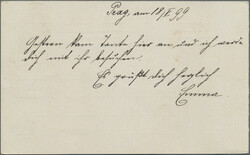 Prag, am 18/X 99
Gestern kam Tante hier an und ich werde
dich mit ihr besuchen.
Es grüßt dich herzlich
Emma